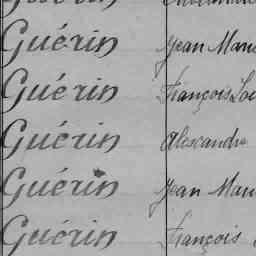 Guérin Jean Marie
Guérin François Lo
Guérin Alexandre
Guérin Jean Mari
Guérin François